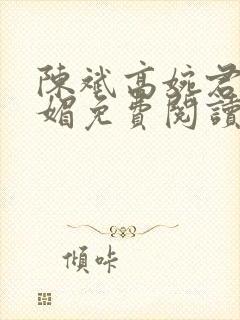 陳斌高婉君
媚免費閱讀
傾咔